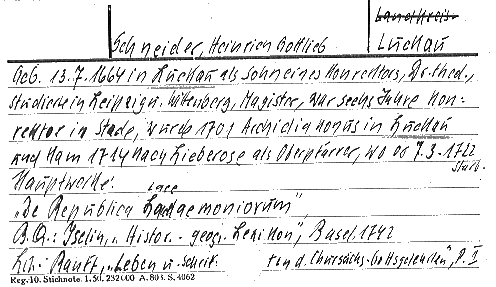 Landkreis
Schneider, Heinrich Gottlieb
Luckau
Geb. 13.7.1664 in Luckau als Sohn eines Konrektors, Dr. theol.,
studierte in Leipzig u. Wittenberg, Magister, war sechs Jahre Kon-
rektor in Stade, wurde 1701 Archidiakonus in Luckau
und kam 1714 nach Lieberose als Oberpfarrer, wo er 7.3.1722
starb.
Hauptwerke:
"De Republica Lacedaemoniorum",
B.Q.: Iselin, "Histor.-geog. Lexikon", Basel 1742
Lit.: Ranft, "Leben u. Schrift. d. Chursächs. Gottsgelehrten", P. I
Reg. 10. Stichnote. 1. 50. 232000 A. 803. S. 4062